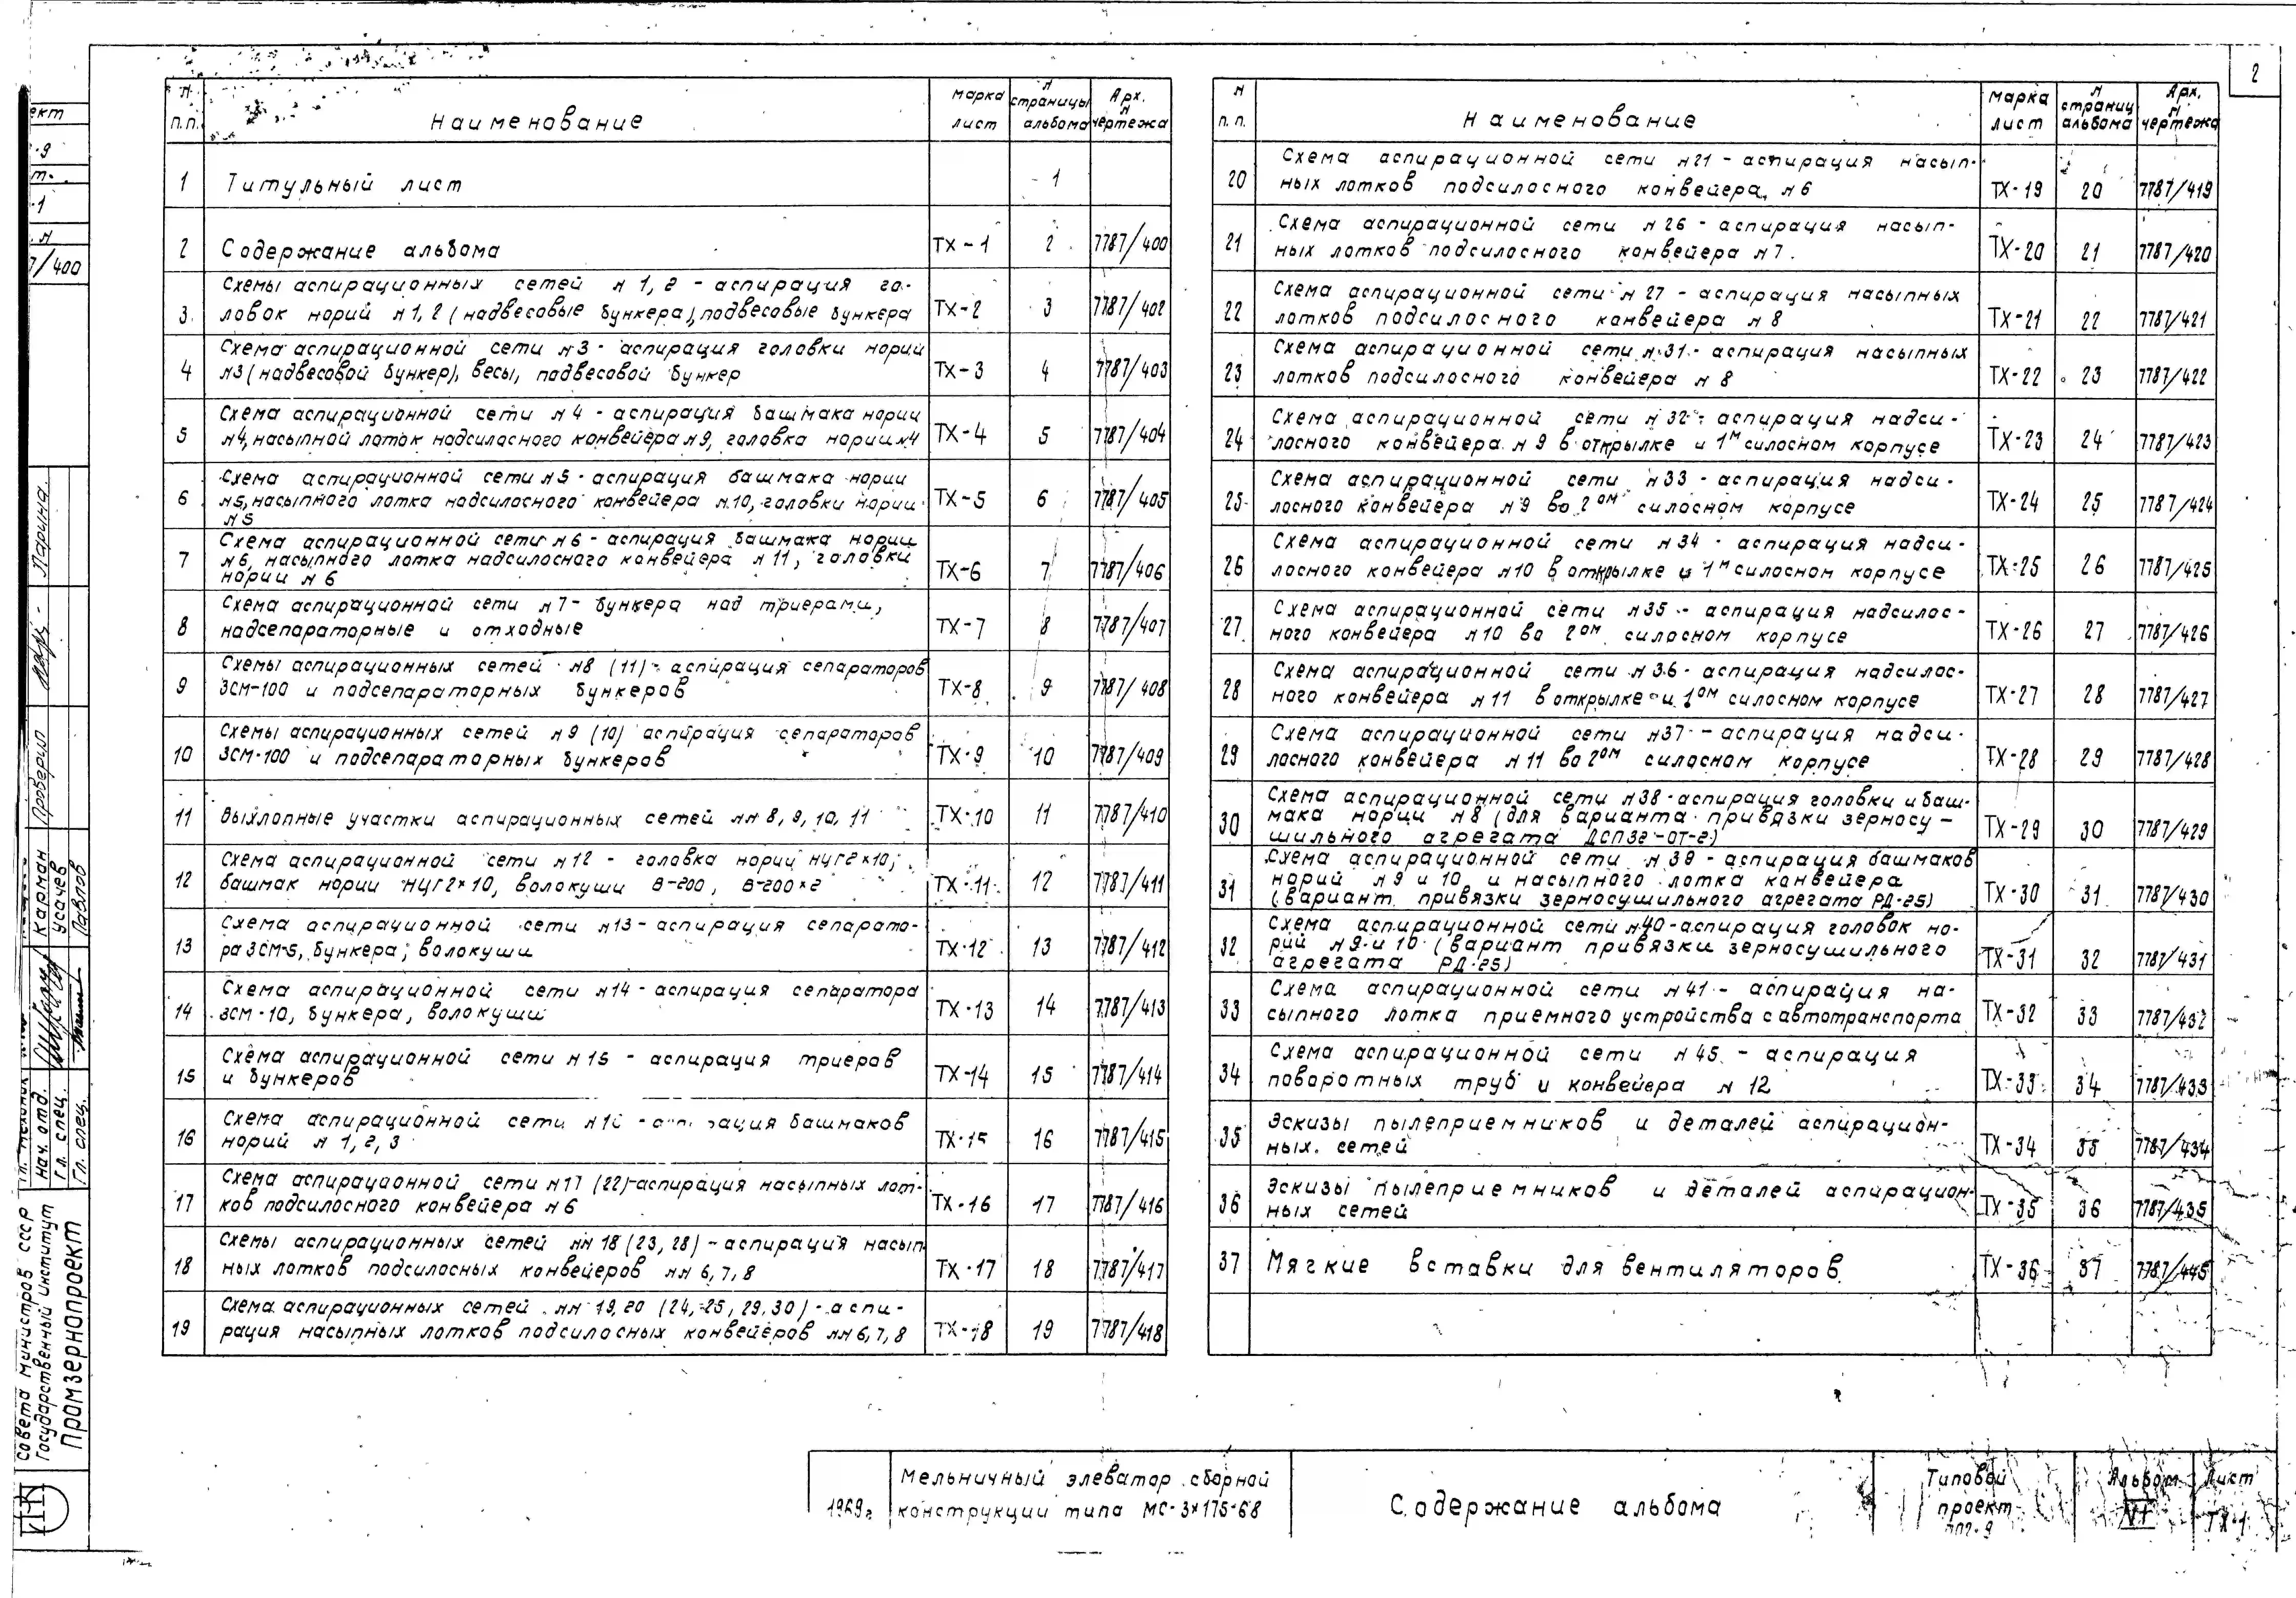 2
N п.п.
Наименование
марка лист
N страницы альбома
Арх. N чертежа
1 Титульный лист 1
2 Содержание альбома ТХ-1 2 7787/400
Схемы аспирационных сетей N 1, 2 - аспирация го-
3 ловок норий N 1, 2 (надвесовые бункера), подвесовые бункера ТХ-2 3 7787/402
Схема аспирационной сети N3 - аспирация головки нории
4 N3 (надвесовой бункер), весы, подвесовой бункер ТХ-3 4 7787/403
Схема аспирационной сети N 4 - аспирация башмака нории
5 N4, насыпной лоток надсилосного конвейера N9, головка нории N4 ТХ-4 5 7787/404
Схема аспирационной сети N5 - аспирация башмака нории
6 N5, насыпного лотка надсилосного конвейера N10, головки нории ТХ-5 6 7787/405
N5
Схема аспирационной сети N6 - аспирация башмака нории
7 N6, насыпного лотка надсилосного конвейера N 11, головки ТХ-6 7 7787/406
нории N 6
Схема аспирационной сети N 7 - бункера над триерами,
8 надсепараторные и отходные ТХ-7 8 7787/407
Схемы аспирационных сетей N8 (11) - аспирация сепараторов
9 ЗСМ-100 и подсепараторных бункеров ТХ-8 9 7787/408
Схемы аспирационных сетей N 9 (10) аспирация сепараторов
10 ЗСМ-100 и подсепараторных бункеров ТХ-9 10 7787/409
11 Выхлопные участки аспирационных сетей NN 8, 9, 10, 11 ТХ-10 11 7787/410
Схема аспирационной сети N 12 - головка нории НЦГ2×10,
12 башмак нории НЦГ2×10, волокуши В-200, В-200×2 ТХ-11 12 7787/411
Схема аспирационной сети N13 - аспирация сепарато-
13 ра ЗСМ-5, бункера, волокуши ТХ-12 13 7787/412
Схема аспирационной сети N14 - аспирация сепаратора
14 ЗСМ-10, бункера, волокуши ТХ-13 14 7787/413
Схема аспирационной сети N 15 - аспирация триеров
15 и бункеров ТХ-14 15 7787/414
Схема аспирационной сети - башмаков
16 норий N 1, 2, 3 ТХ-15 16 7787/415
Схема аспирационной сети N17 (22)-аспирация насыпных лот-
17 ков подсилосного конвейера N 6 ТХ-16 17 7787/416
Схемы аспирационных сетей NN 18 (23, 28) - аспирация насып
18 ных лотков подсилосных конвейеров NN 6, 7, 8 ТХ-17 18 7787/417
Схема аспирационных сетей NN 19, 20 (24, 25, 29, 30) - аспи-
19 рация насыпных лотков подсилосных конвейеров NN 6, 7, 8 ТХ-18 19 7787/418
N п.п.
Наименование
марка лист
N страниц альбома
Арх. N чертежа
Схема аспирационной сети N21 - аспирация насып-
20 ных лотков подсилосного конвейера N 6 ТХ-19 20 7787/419
Схема аспирационной сети N 26 - аспирация насып-
21 ных лотков подсилосного конвейера N 7. ТХ-20 21 7787/420
Схема аспирационной сети N 27 - аспирация насыпных
22 лотков подсилосного конвейера N 8 ТХ-21 22 7787/421
Схема аспирационной сети N 31 - аспирация насыпных
23 лотков подсилосного конвейера N 8 ТХ-22 23 7787/422
Схема аспирационной сети N 32 - аспирация надси-
24 лосного конвейера N 9 в открылке и 1м силосном корпусе ТХ-23 24 7787/423
Схема аспирационной сети N33 - аспирация надси-
25 лосного конвейера N 9 во 2ом силосном корпусе ТХ-24 25 7787/424
Схема аспирационной сети N 34 - аспирация надси-
26 лосного конвейера N10 в открылке и 1м силосном корпусе ТХ-25 26 7787/425
Схема аспирационной сети N35 - аспирация надсилос-
27 ного конвейера N10 во 2ом силосном корпусе ТХ-26 27 7787/426
Схема аспирационной сети N 36 - аспирация надсилос-
28 ного конвейера N 11 в открылке и 1ом силосном корпусе ТХ-27 28 7787/427
Схема аспирационной сети N37 - аспирация надси-
29 лосного конвейера N 11 во 2ом силосном корпусе ТХ-28 29 7787/428
Схема аспирационной сети N38 - аспирация головки и баш-
30 мака нории N8 (для варианта привязки зерносу- ТХ-29 30 7787/429
шильного агрегата ДСП32-ОТ-2)
Схема аспирационной сети N 39 - аспирация башмаков
31 норий N 9 и 10 и насыпного лотка конвейера ТХ-30 31 7787/430
(вариант привязки зерносушильного агрегата РД-25)
Схема аспирационной сети N40 - аспирация головок но-
32 рий N 9 и 10 (вариант привязки зерносушильного ТХ-31 32 7787/431
агрегата РД-25)
Схема аспирационной сети N 41 - аспирация на-
33 сыпного лотка приемного устройства с автотранспорта ТХ-32 33 7787/432
Схема аспирационной сети N 45 - аспирация
34 поворотных труб и конвейера N 12 ТХ-33 34 7787/433
Эскизы пылеприемников и деталей аспирацион-
35 ных сетей ТХ-34 35 7787/434
Эскизы пылеприемников и деталей аспирацион-
36 ных сетей ТХ-35 36 7787/435
37 Мягкие вставки для вентиляторов ТХ-36 37 7787/445
1969г
Мельничный элеватор сборной
конструкции типа МС-3×175-68
Содержание альбома
Типовой
проект
Альбом
VI
Лист
ТХ-1
ект
7/400
Ларина
Проверил
Карман
Усачев
Павлов
нач. отд.
гл. спец.
Гл. спец.
Совета министров СССР
Государственный институт
Промзернопроект